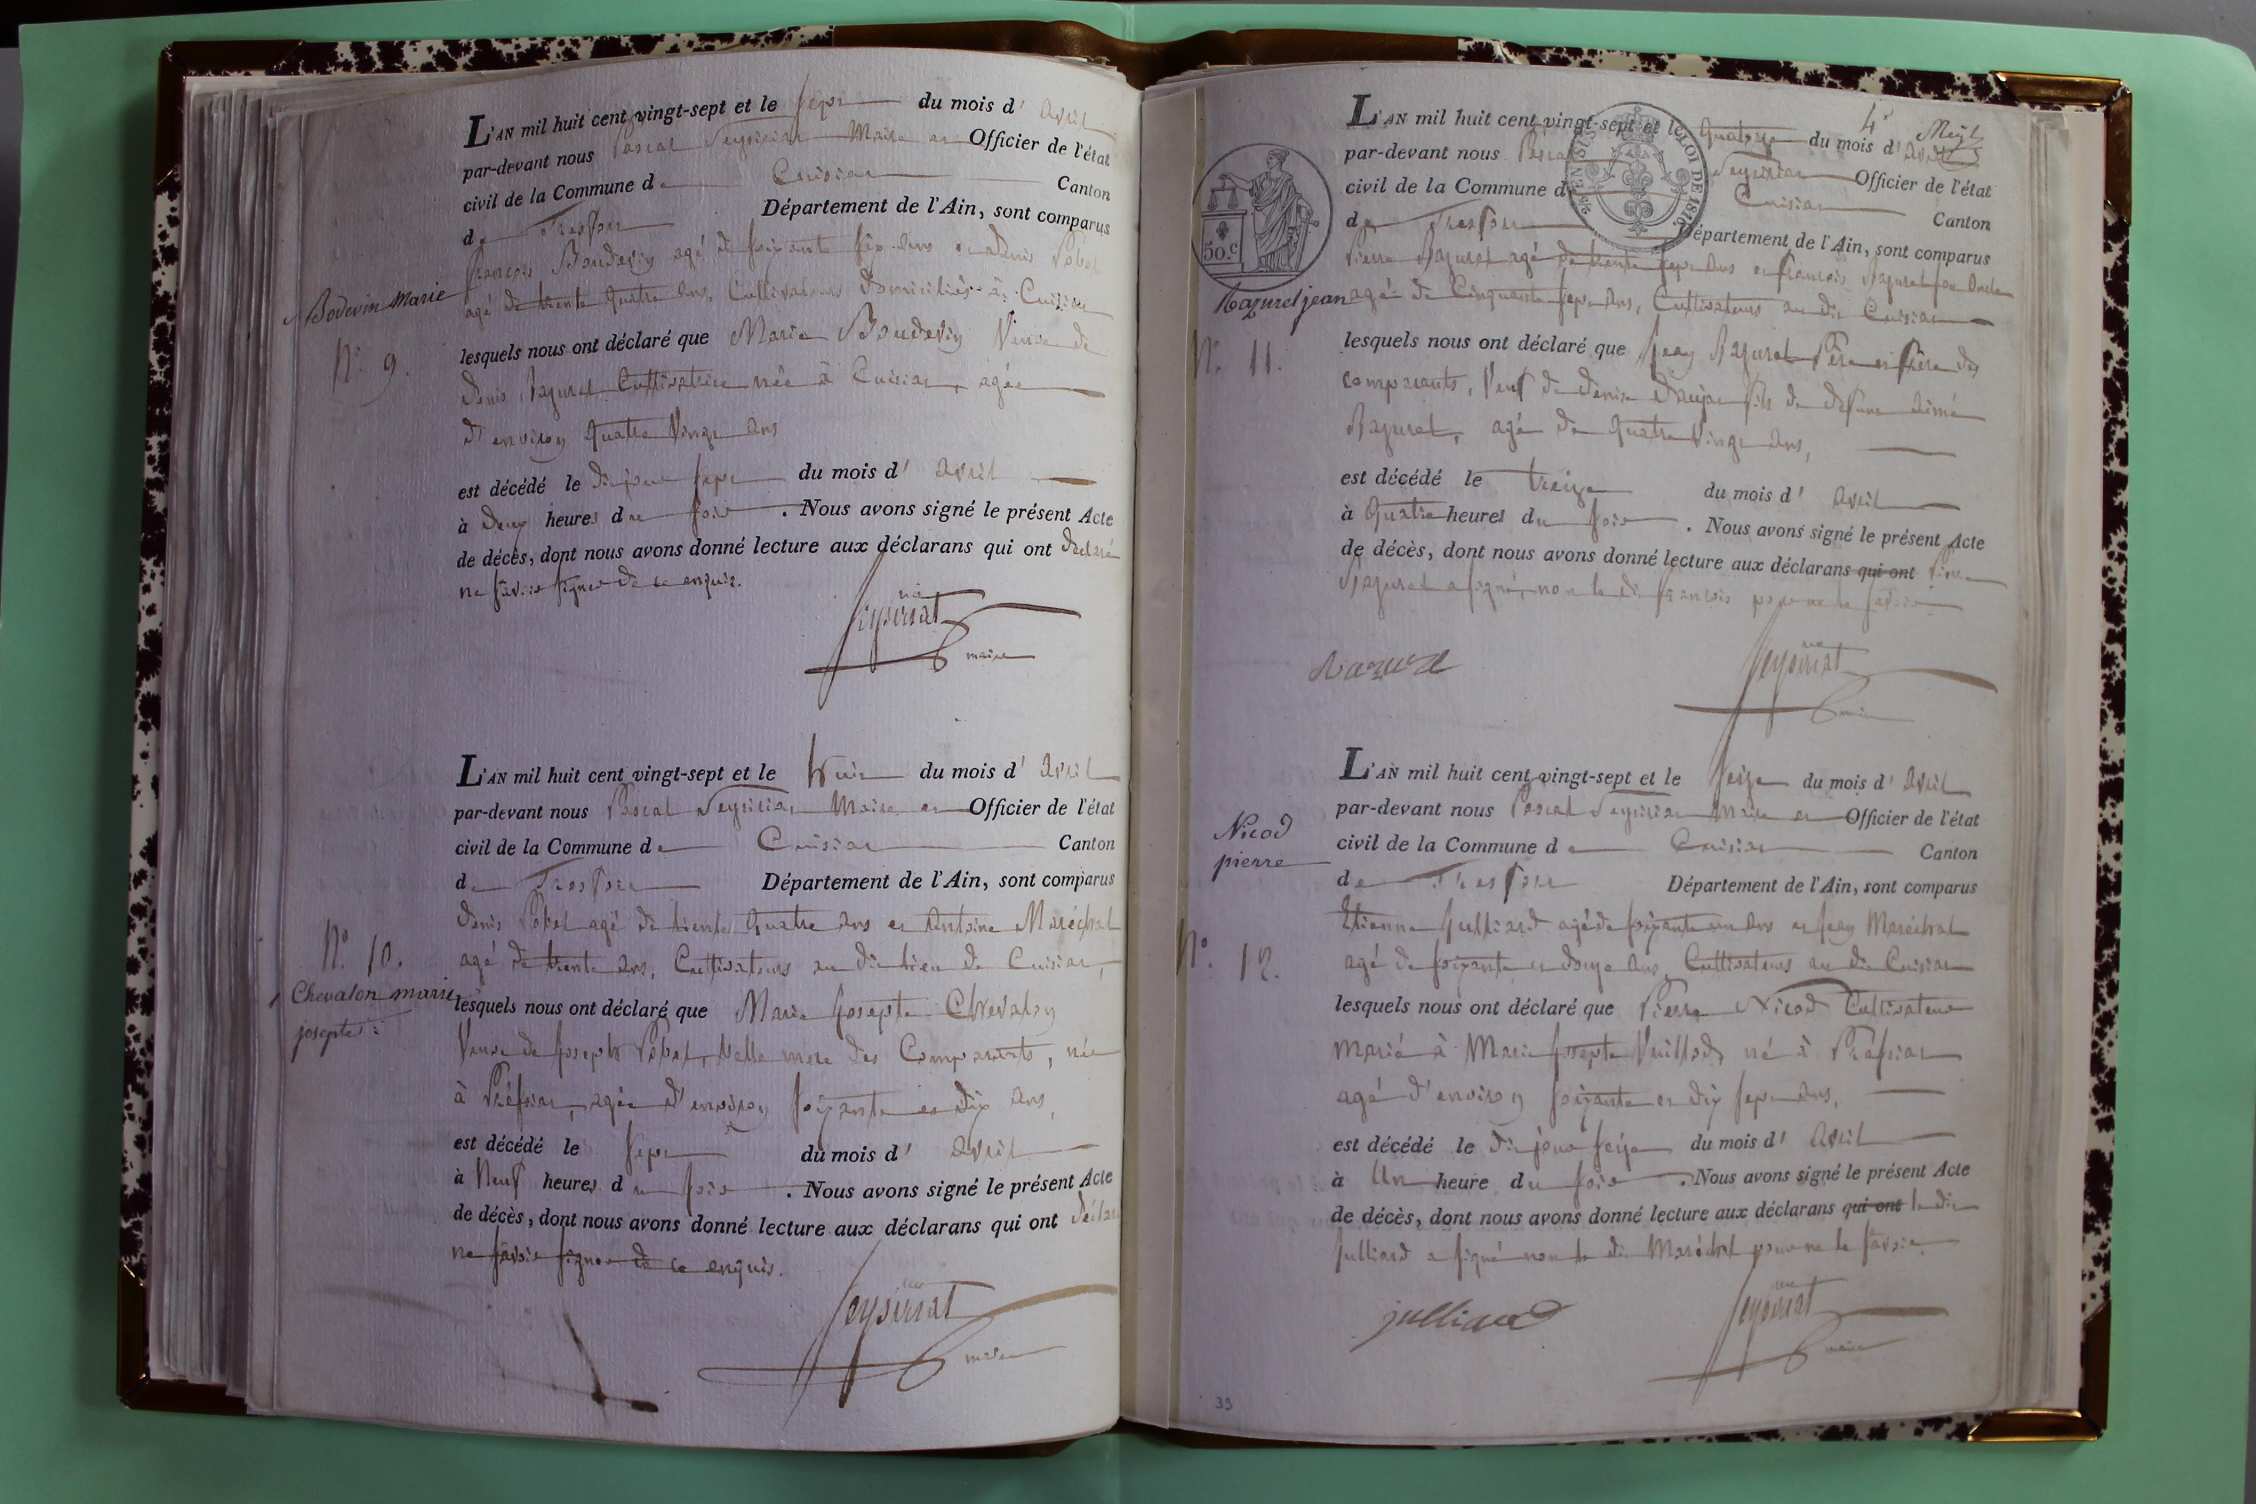 L'AN mil huit cent vingt-sept et le sept du mois d' avril
par-devant nous Pascal Seysiriat Maire et Officier de l'état
civil de la Commune de Cuisiat Canton
de Treffort Département de l'Ain, sont comparus
françois Boudevin agé de soixante six ans et denis Pobel
agé de trente quatre ans, Cultivateurs domiciliés à Cuisiat
Bodevin Marie
N.o 9.
lesquels nous ont déclaré que Marie Boudevin Veuve de
denis Razurel Cultivatrice née à Cuisiat, agée
d'environ quatre Vingt ans
est décédé le dit jour sept du mois d' avril
à deux heures du soir . Nous avons signé le présent Acte
de décès, dont nous avons donné lecture aux déclarans qui ont déclaré
ne savoir signer de ce enquis.
Seysiriat
maire
L'AN mil huit cent vingt-sept et le huit du mois d' avril
par-devant nous Pascal Seysiriat Maire et Officier de l'état
civil de la Commune de Cuisiat Canton
de Treffort Département de l'Ain, sont comparus
denis Pobel agé de trente quatre ans et Antoine Maréchal
agé de trente ans, Cultivateurs au dit lieu de Cuisiat,
N.o 10.
Chevalon marie
josephte
lesquels nous ont déclaré que Marie Josephte Chevalon
Veuve de Joseph Pobel, belle mere des Comparants, née
à Préssiat, agée d'environ soixante et dix ans,
est décédé le sept du mois d' avril
à Neuf heures du soir . Nous avons signé le présent Acte
de décès, dont nous avons donné lecture aux déclarans qui ont déclaré
ne savoir signer de ce enquis.
Seysiriat
maire
L'AN mil huit cent vingt-sept et le quatorze du mois d' avril
par-devant nous Pascal Seysiriat Officier de l'état
civil de la Commune de Cuisiat Canton
de Treffort Département de l'Ain, sont comparus
LOI DE 1816
50.c
Pierre Razurel agé de trente sept ans et françois Razurel son Oncle
Razurel jean
agé de Cinquante sept ans, Cultivateurs au dit Cuisiat
N.o 11.
lesquels nous ont déclaré que Jean Razurel Père et frère des
comparants, Veuf de denise fils de defunt aimé
Razurel, agé de quatre Vingt ans,
est décédé le treize du mois d' avril
à quatre heures du soir . Nous avons signé le présent Acte
de décès, dont nous avons donné lecture aux déclarans qui ont Pierre
Razurel a signé, non le dit françois pour ne le savoir
Razurel
Seysiriat
maire
L'AN mil huit cent vingt-sept et le seize du mois d' avril
par-devant nous Pascal Seysiriat Maire et Officier de l'état
civil de la Commune de Cuisiat Canton
de Treffort Département de l'Ain, sont comparus
Nicod
pierre
Etienne Julliard agé de soixante un ans et Jean Maréchal
agé de soixante et douze ans, Cultivateurs au dit Cuisiat
N.o 12.
lesquels nous ont déclaré que Pierre Nicod Cultivateur
marié à Marie Josephte Vuillod, né à Préssiat
agé d'environ soixante et dix sept ans,
est décédé le dit jour seize du mois d' avril
à Un heure du soir . Nous avons signé le présent Acte
de décès, dont nous avons donné lecture aux déclarans qui ont le dit
Julliard a signé non le dit Maréchal pour ne le savoir
julliard
Seysiriat
maire
39